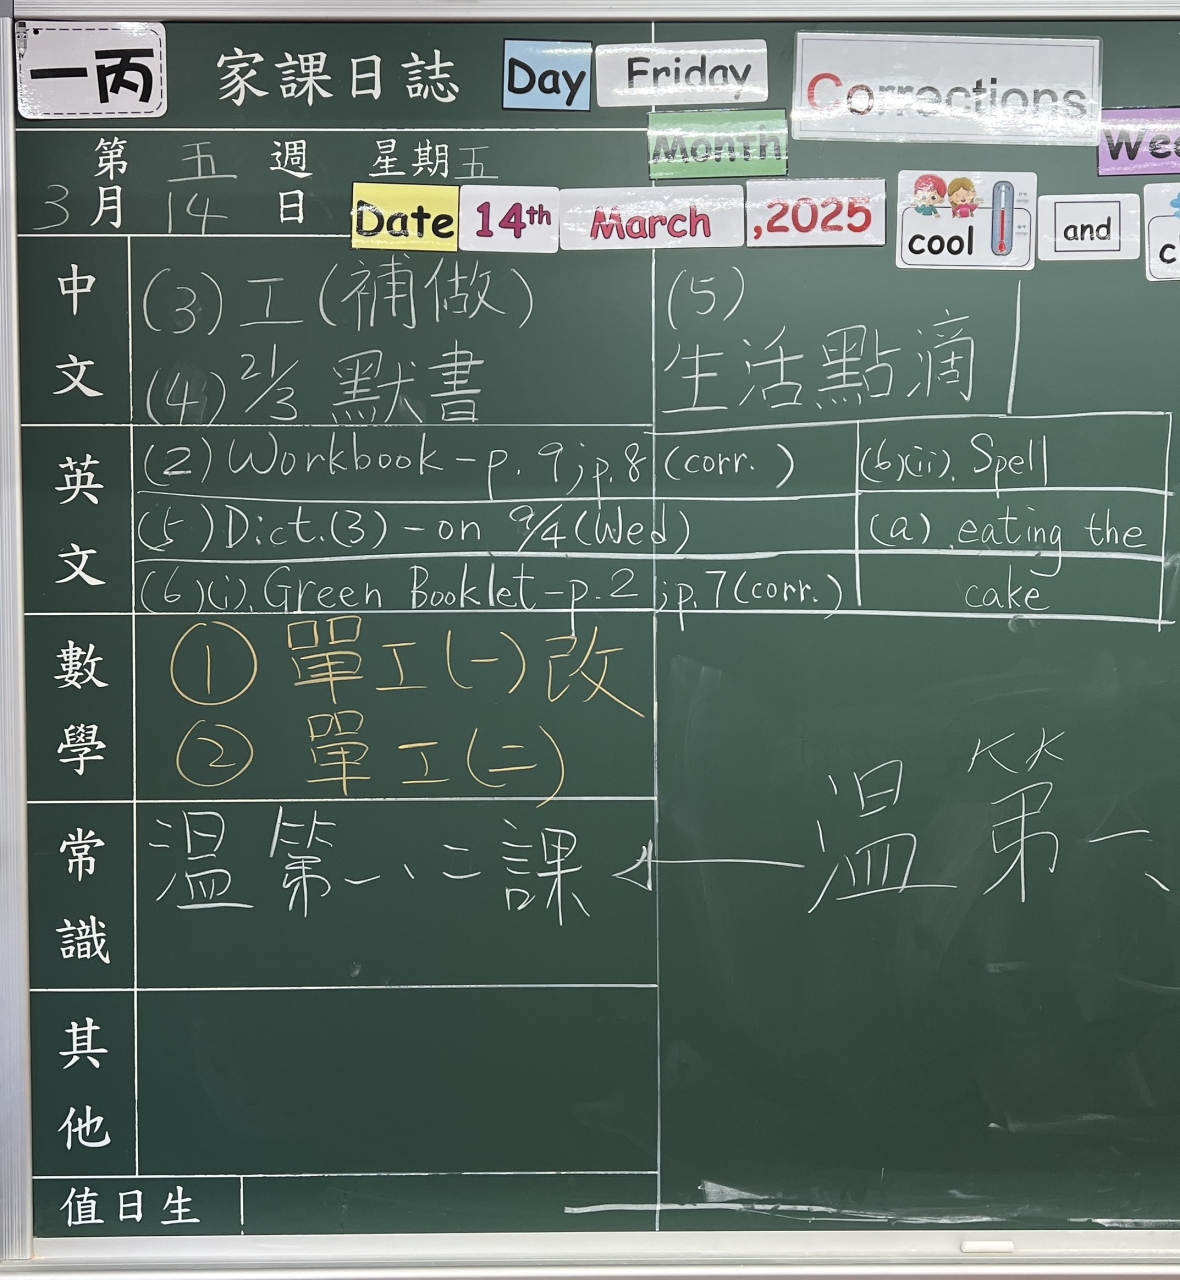 一丙 家課日誌 Day Friday Corrections
Month
第五週 星期五
3月14日 Date 14th March ,2025 cool and
中文
(3)工(補做)
(4)21/3 默書
(5)
生活點滴
英文
(2)Workbook-p.9;p.8(corr.)
(6)(ii). Spell
(5)Dict.(3)-on 9/4(Wed)
(a) eating the
(6)(i). Green Booklet-p.2;p.7(corr.)
cake
數學
① 單工(一)改
② 單工(二)
常識
溫第一、二課
溫第一、
其他
值日生